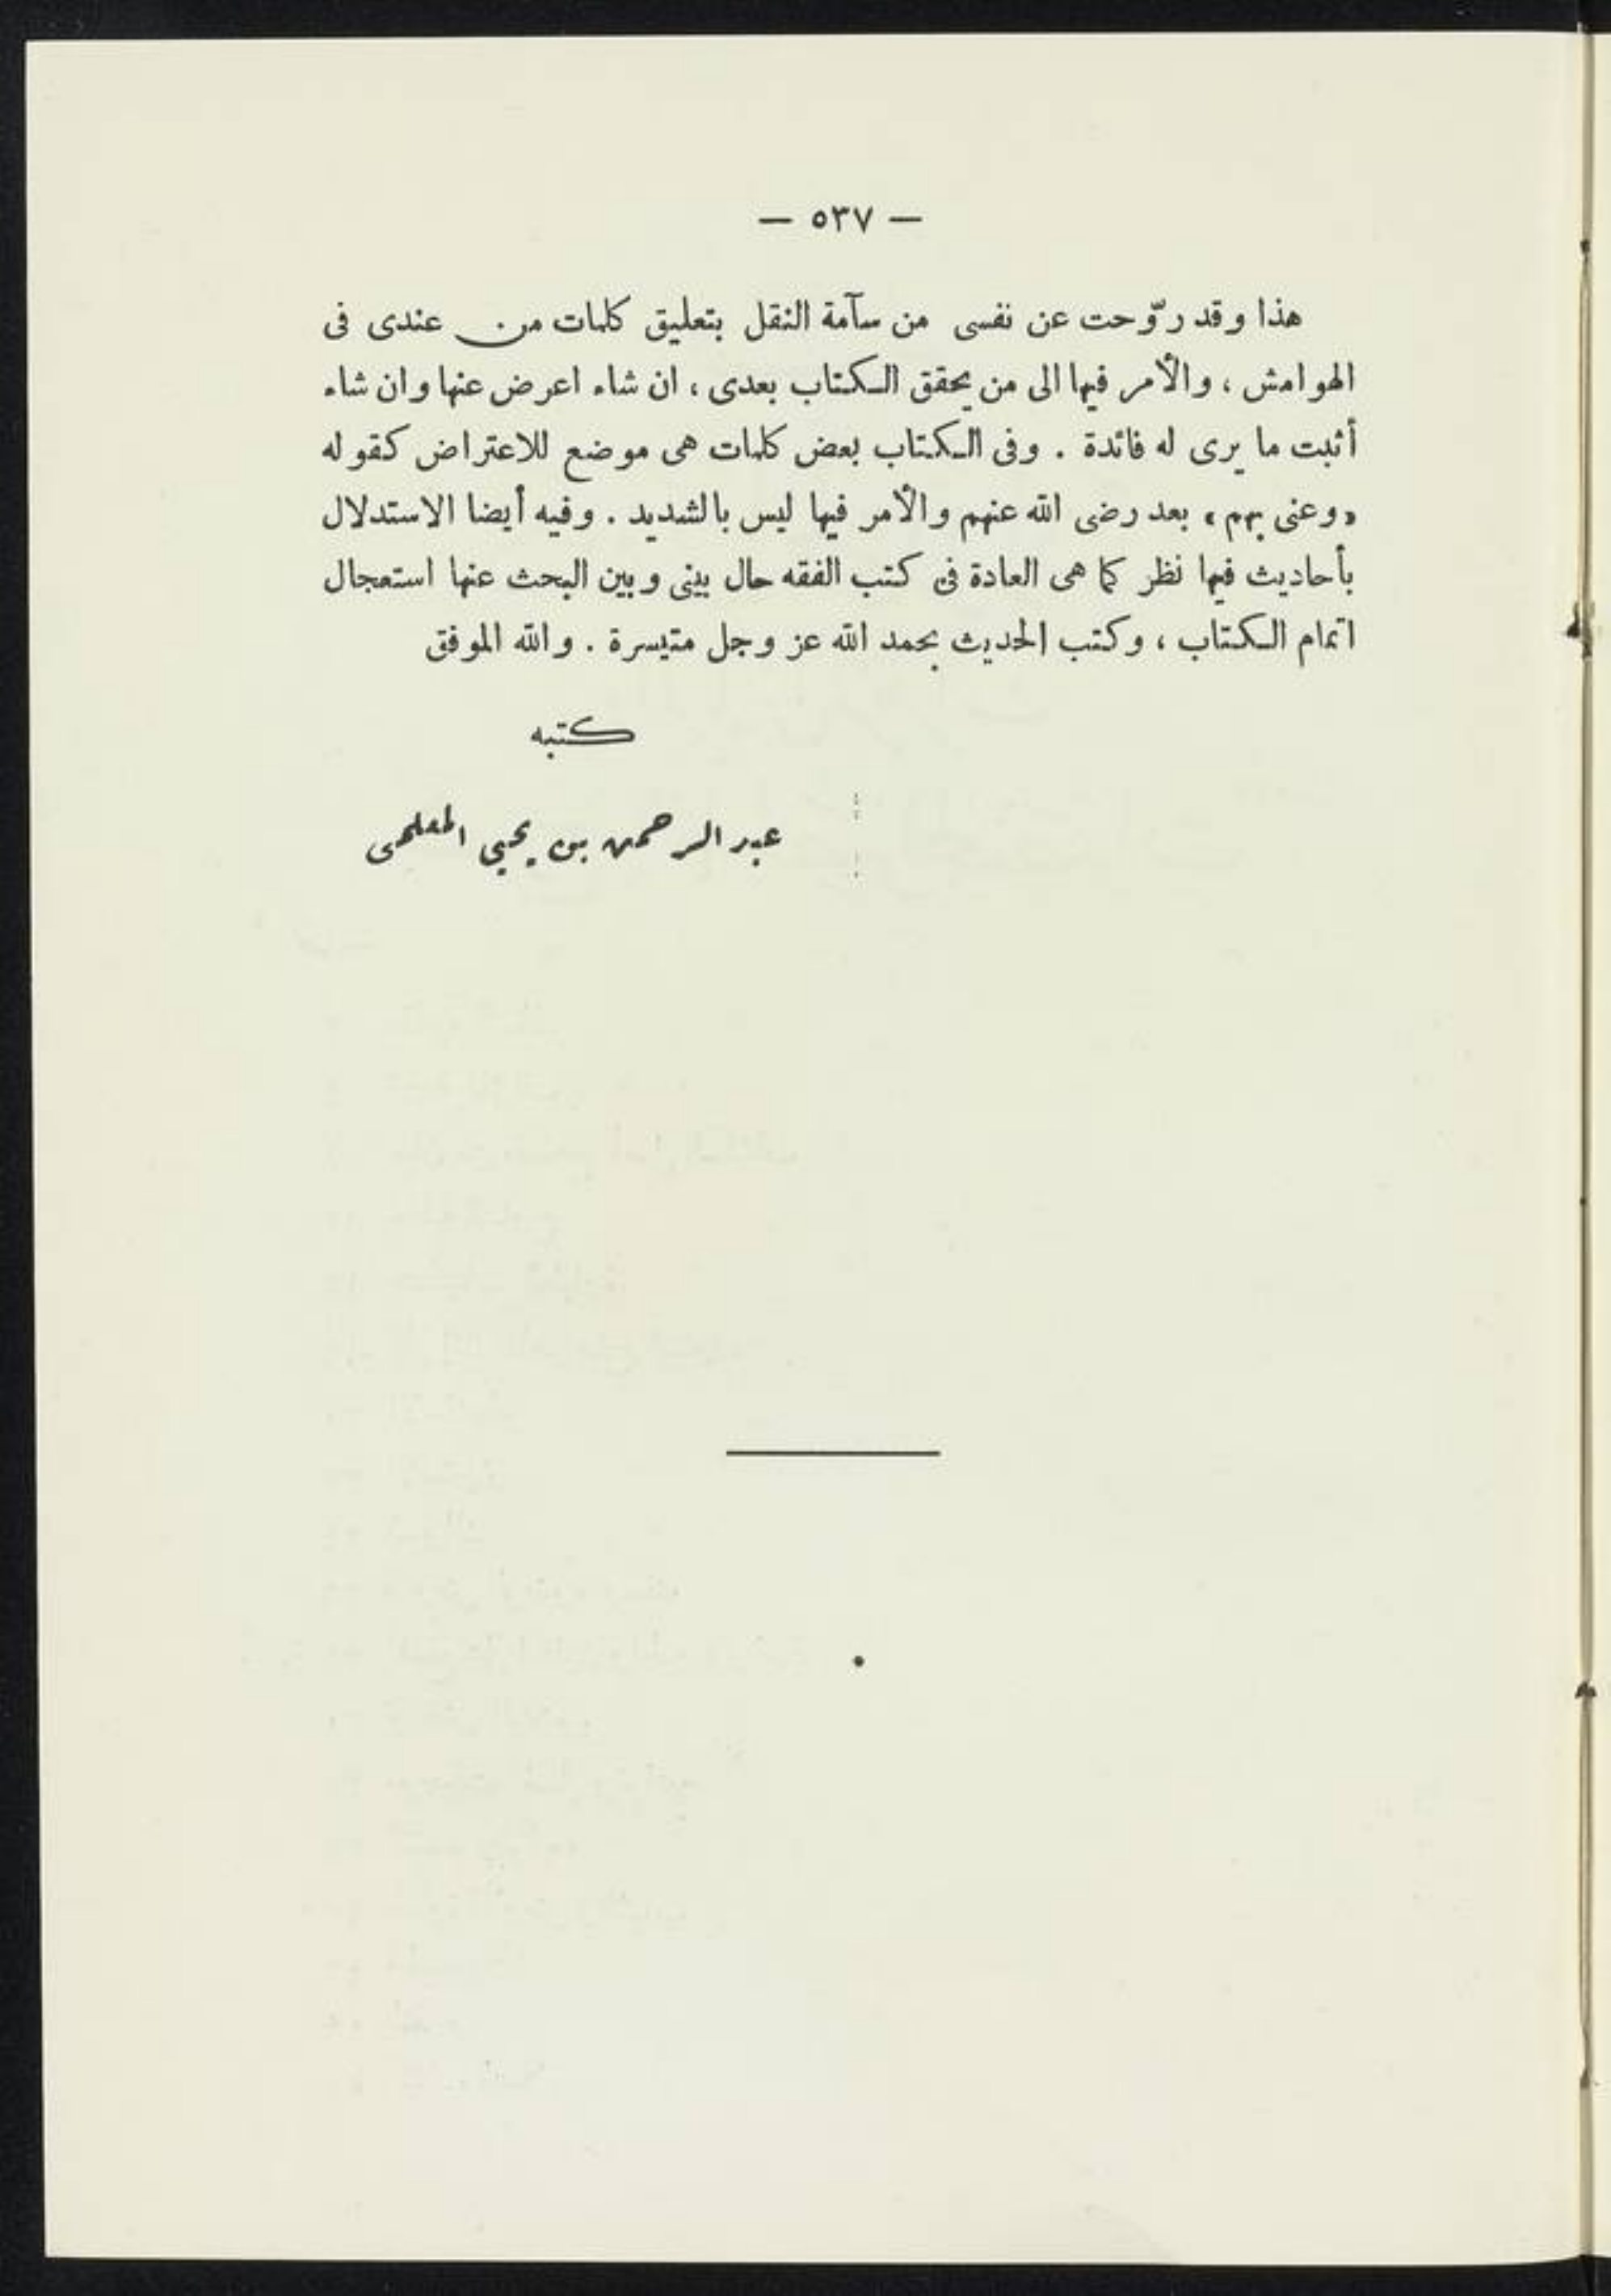 — ٥٣٧ —
هذا وقد روّحت عن نفسى من سآمة النقل بتعليق كلمات من عندى فى
الهوامش ، والأمر فيها الى من يحقق الكتاب بعدى ، ان شاء اعرض عنها وان شاء
أثبت ما يرى له فائدة . وفى الكتاب بعض كلمات هى موضع للاعتراض كقوله
«وعنى بهم» بعد رضى الله عنهم والأمر فيها ليس بالشديد . وفيه أيضا الاستدلال
بأحاديث فيها نظر كما هى العادة فى كتب الفقه حال بينى وبين البحث عنها استعجال
اتمام الكتاب ، وكتب الحديث بحمد الله عز وجل متيسرة . والله الموفق
كتبه
عبد الرحمن بن يحيى المعلمى